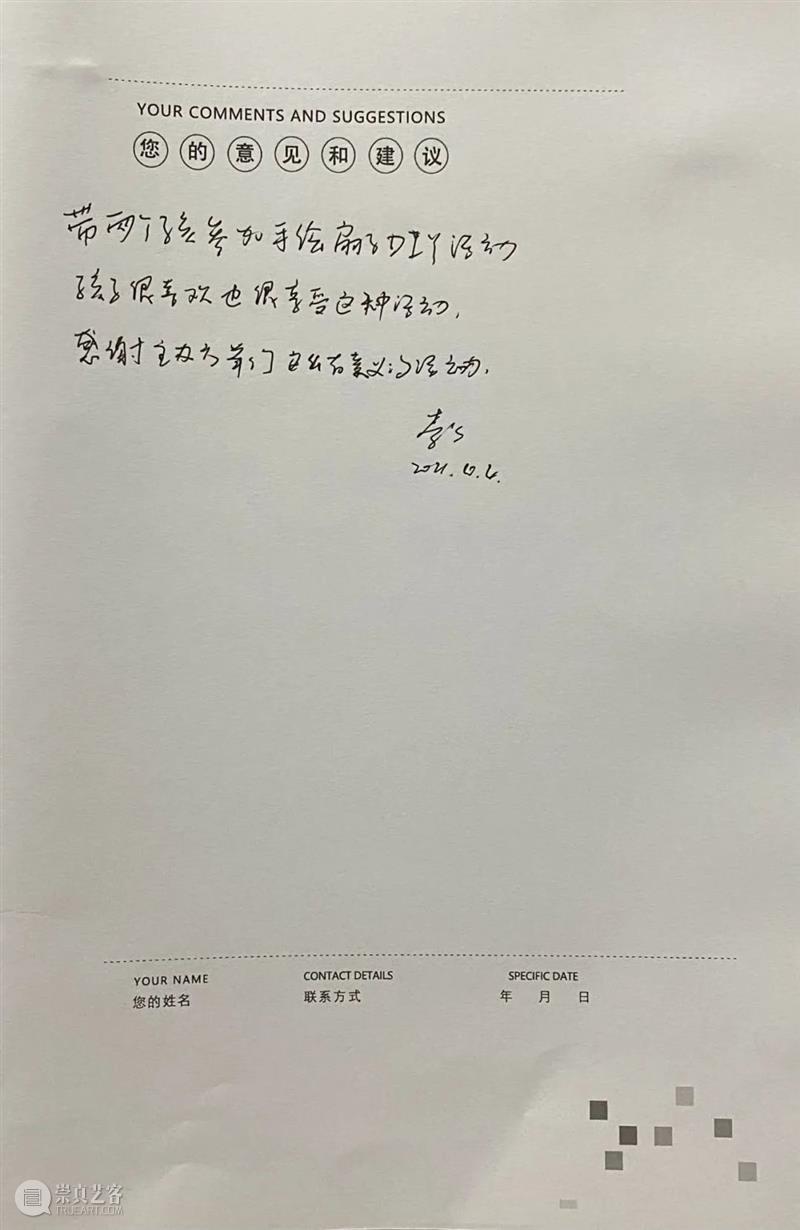 YOUR COMMENTS AND SUGGESTIONS
您的意见和建议
带两个孩参加手绘扇子DIY活动
孩子很喜欢也很享受这种活动,
感谢主办方举行这么有意义的活动.
2021.6.6.
YOUR NAME CONTACT DETAILS SPECIFIC DATE
您的姓名 联系方式 年 月 日
崇真艺客
TRUEART.COM